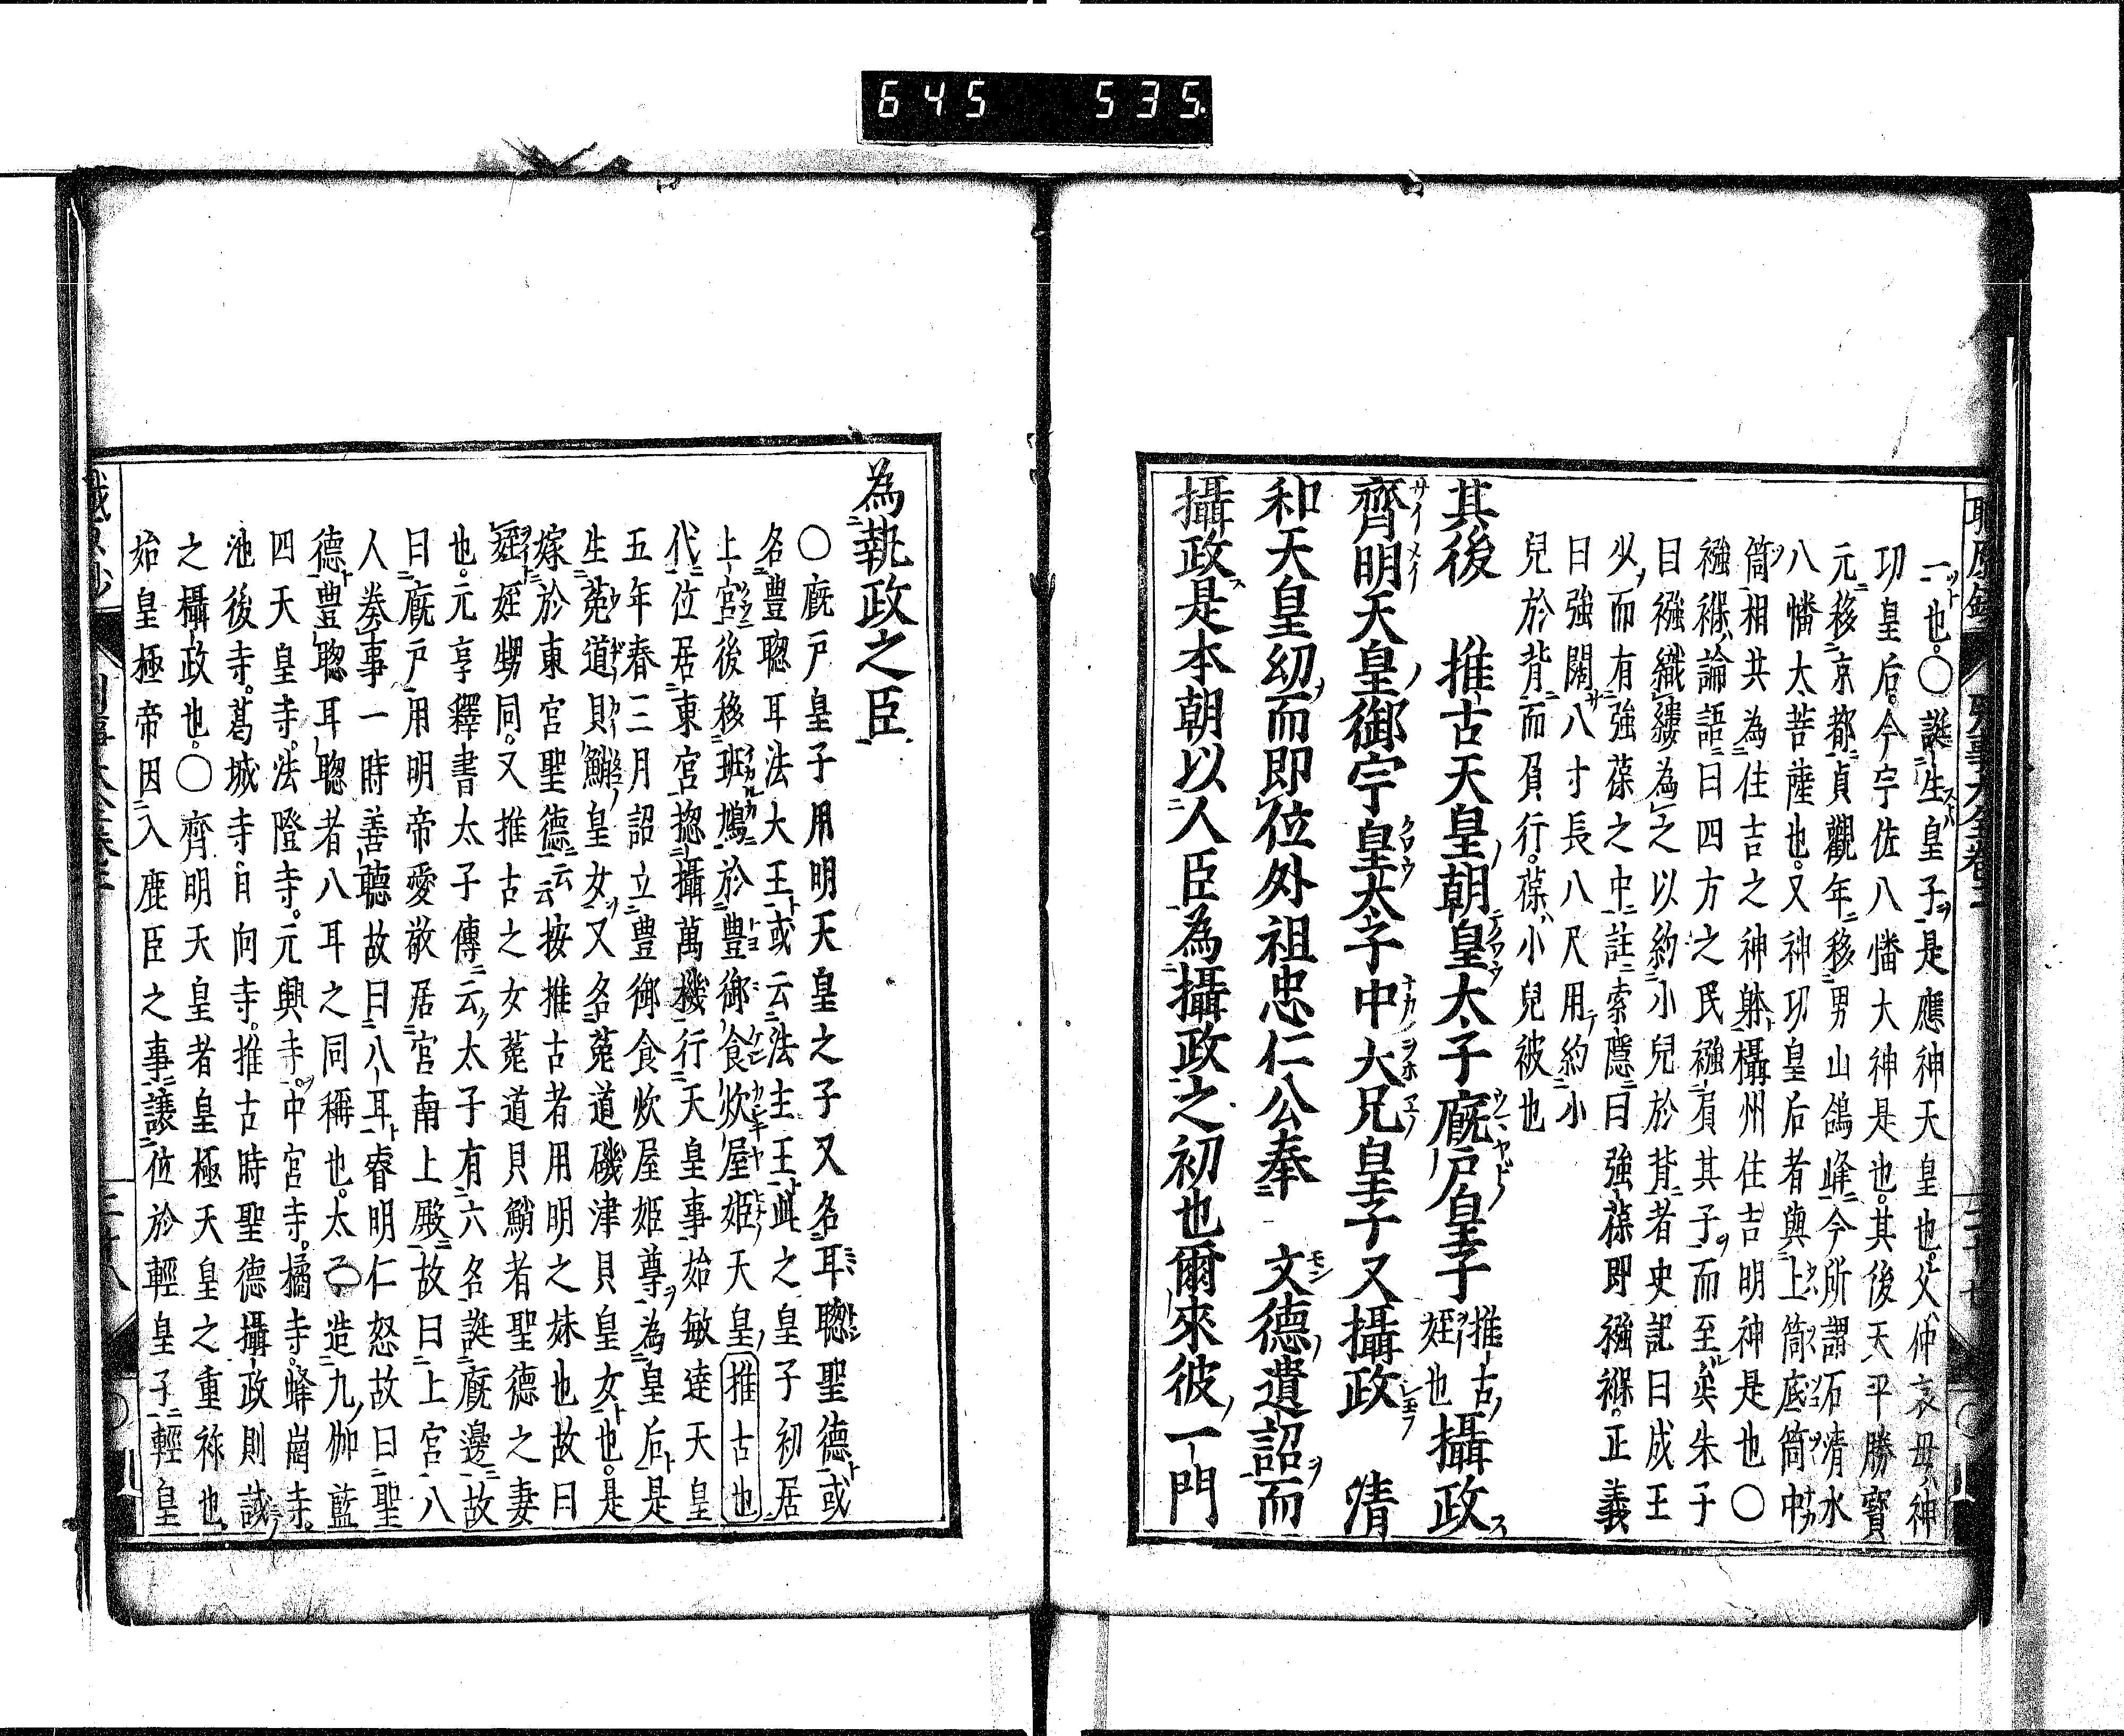 645 535
一也。〇誕生皇子是應神天皇也。父仲哀母神
功皇后。今宇佐八幡大神是也。其後天平勝寶
元移京都貞觀年移男山鴿峰今所謂石清水
八幡大菩薩也。又神功皇后者與上筒底筒中
筒相共為住吉之神躰攝州住吉明神是也〇
襁褓論語曰四方之民襁負其子而至矣朱子
曰襁織縷為之以約小兒於背者史記曰成王
少而有強葆之中註索隱曰強葆即襁褓。正義
曰強闊八寸長八尺用約小
兒於背而負行。葆小兒被也
其後 推古天皇朝皇太子廐戸皇子推古姪也攝政
齊明天皇御宇皇太子中大兄皇子又攝政 清
和天皇幼而即位外祖忠仁公奉 文德遺詔而
攝政是本朝以人臣為攝政之初也爾來彼一門
為執政之臣
〇廐戸皇子用明天皇之子又名耳聰聖德或
名豐聰耳法大王或云法主王此之皇子初居
上宮後移班鳩於豐御食炊屋姫天皇推古也
代位居東宮揔攝萬機行天皇事始敏達天皇
五年春三月詔立豐御食炊屋姫尊為皇后是
生菟道貝鮹皇女又名菟道磯津貝皇女也。是
嫁於東宮聖德云云按推古者用明之妹也故曰
姪姪甥同。又推古之女菟道貝鮹者聖德之妻
也。元亨釋書太子傳云太子有六名誕廐邊故
曰廐戸用明帝愛敬居宮南上殿故曰上宮八
人奏事一時善聽故曰八耳睿明仁恕故曰聖
德豐聰耳聰者八耳之同稱也。太子〇造九伽藍
四天皇寺。法隆寺。元興寺。中宮寺。橘寺。蜂崗寺。
池後寺。葛城寺。日向寺。推古時聖德攝政則誠
之攝政也。〇齊明天皇者皇極天皇之重祚也
始皇極帝因入鹿臣之事讓位於輕皇子輕皇